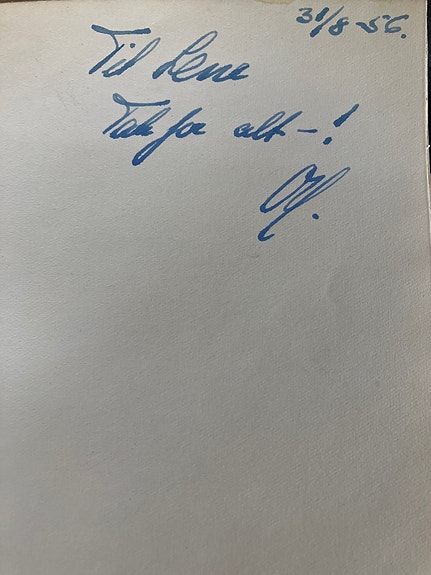 31/8-56.
Til Lene
Tak for alt-!